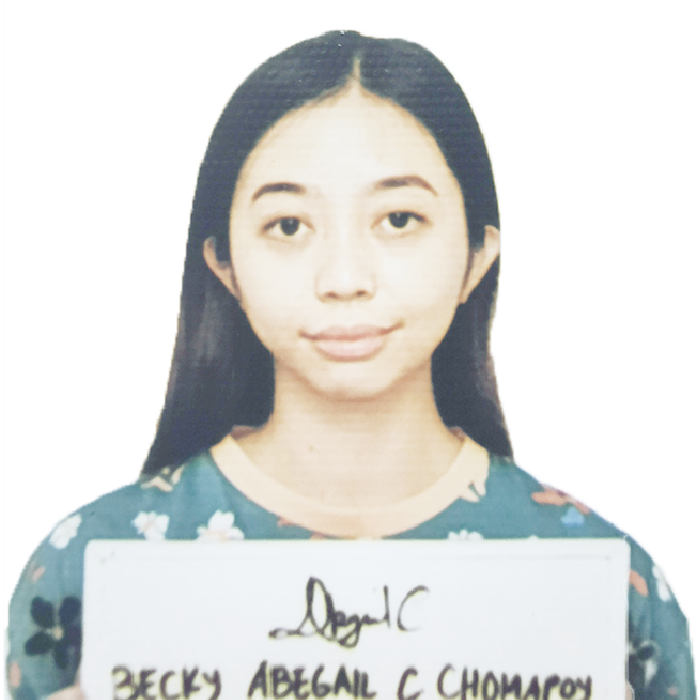 Abgail C
BECKY ABEGAIL C CHOMAPOY